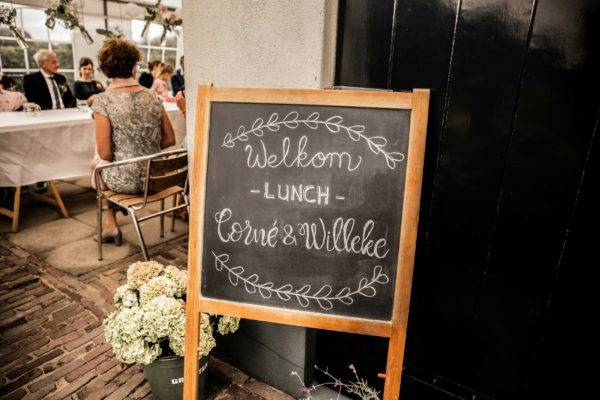 Welkom
- LUNCH -
Corné & Willeke